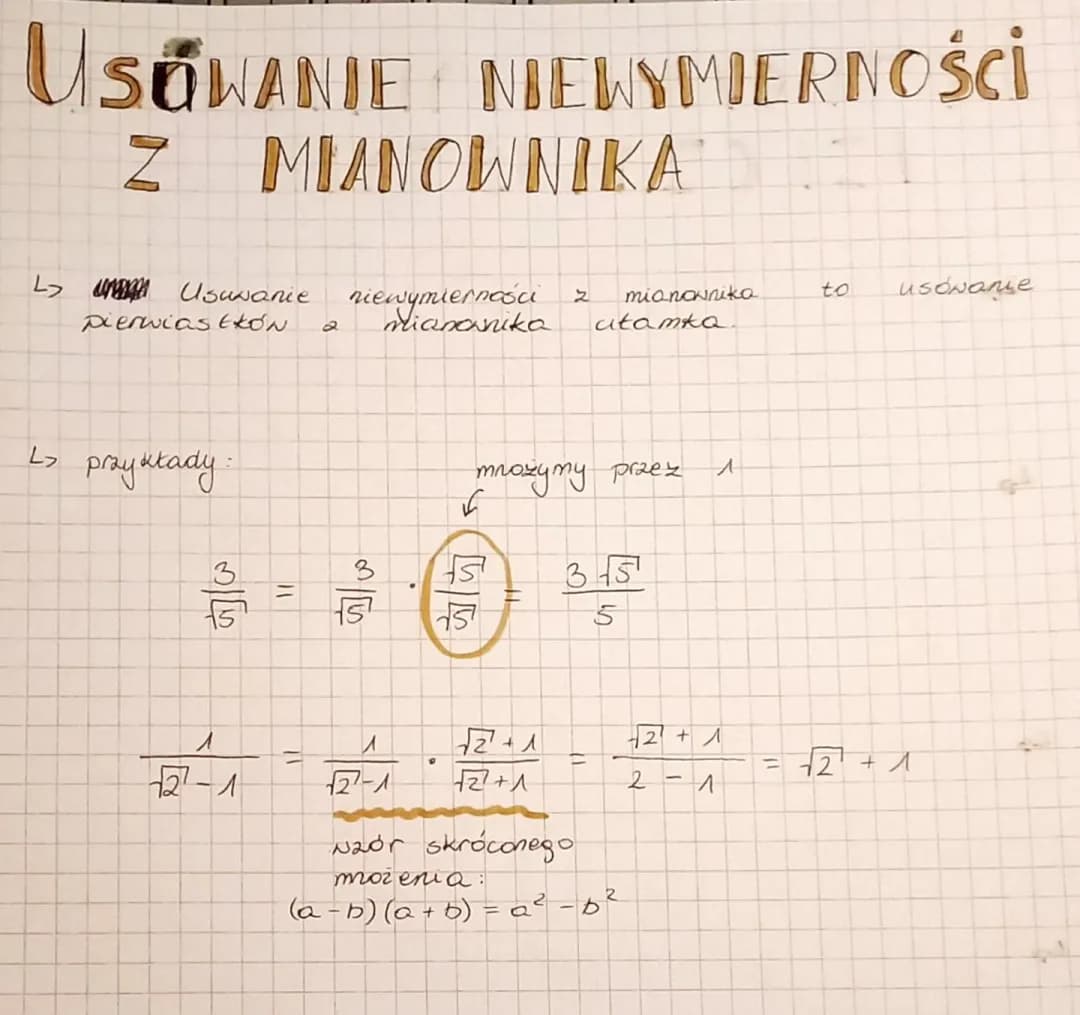 USÓWANIE NIEWYMIERNOŚCI
Z MIANOWNIKA
↳ Usuwanie niewymierności z mianownika to usówanie
pierwiastków z mianownika ułamka.
↳ przykłady:
mnożymy przez 1
3/√5 = 3/√5 · √5/√5 = 3√5/5
1/(√2-1) = 1/(√2-1) · (√2+1)/(√2+1) = (√2+1)/(2-1) = √2+1
wzór skróconego
mnożenia:
(a-b)(a+b) = a²-b²